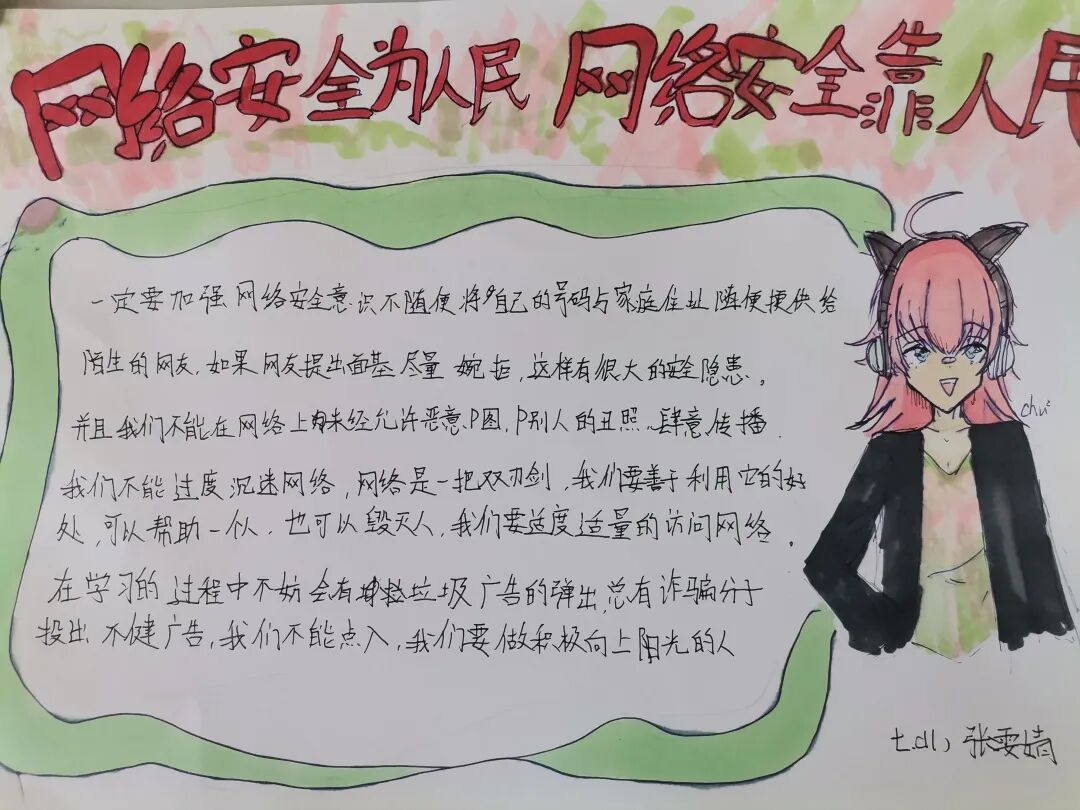 网络安全为人民 网络安全靠人民
一定要加强网络安全意识不随便将自己的号码与家庭住址随便提供给
陌生的网友,如果网友提出面基尽量婉拒,这样有很大的安全隐患。
并且我们不能在网络上未经允许恶意P图,P别人的丑照肆意传播.
我们不能过度沉迷网络,网络是一把双刃剑,我们要善于利用它的好
处,可以帮助一个人,也可以毁灭人,我们要适度适量的访问网络.
在学习的过程中不妨会有垃圾广告的弹出,总有诈骗分子
投出不健广告,我们不能点入,我们要做积极向上阳光的人
chu²
七.(1) 张雯婧